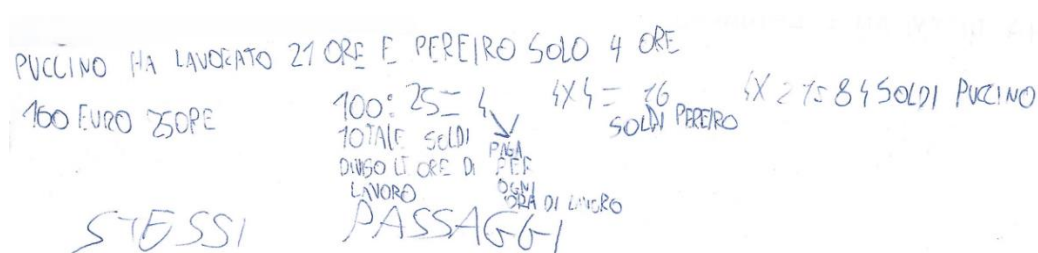 PUCCINO HA LAVORATO 21 ORE E PEREIRO SOLO 4 ORE
100 EURO 25 ORE
100 : 25 = 4
TOTALE SOLDI
DIVISO LE ORE DI
LAVORO
PAGA
PER
OGNI
ORA DI LAVORO
4X4 = 16
SOLDI PEREIRO
4X 21= 84 SOLDI PUCCINO
STESSI PASSAGGI